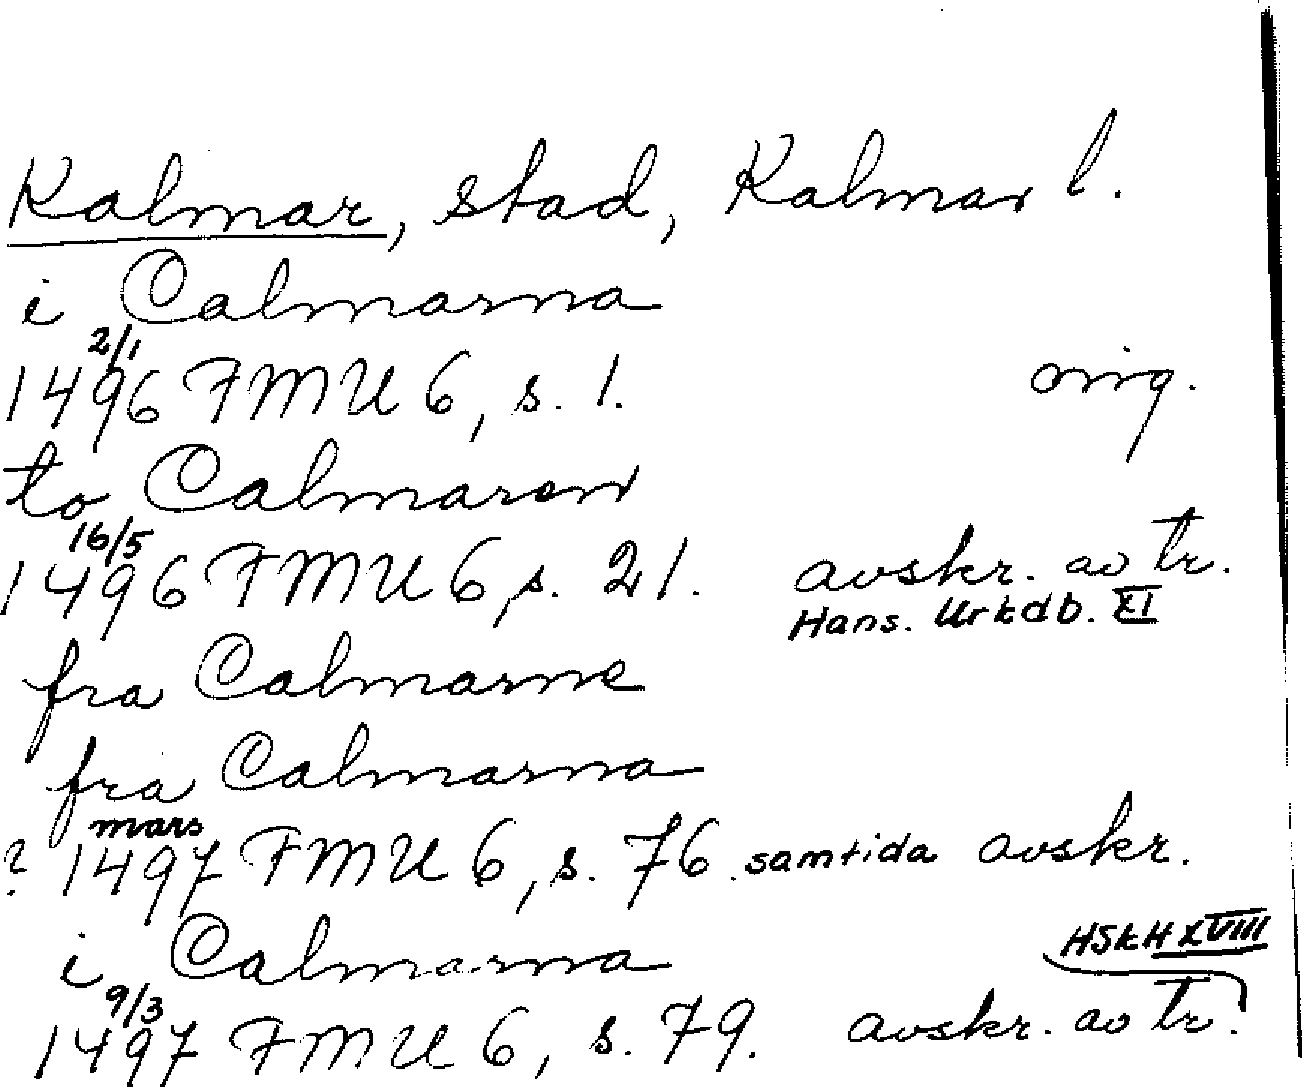 Kalmar, stad, Kalmar l.
i Calmarna
2/1
1496 FMU 6, s. 1. orig.
to Calmaren
16/5
1496 FMU 6, s. 21. avskr. av tr.
Hans. Urkdb. XI
fra Calmarne
fra Calmarna
mars
? 1497 FMU 6, s. 76. samtida avskr.
i Calmarna
HSkH XVIII
9/3
1497 FMU 6, s. 79. avskr. av tr.